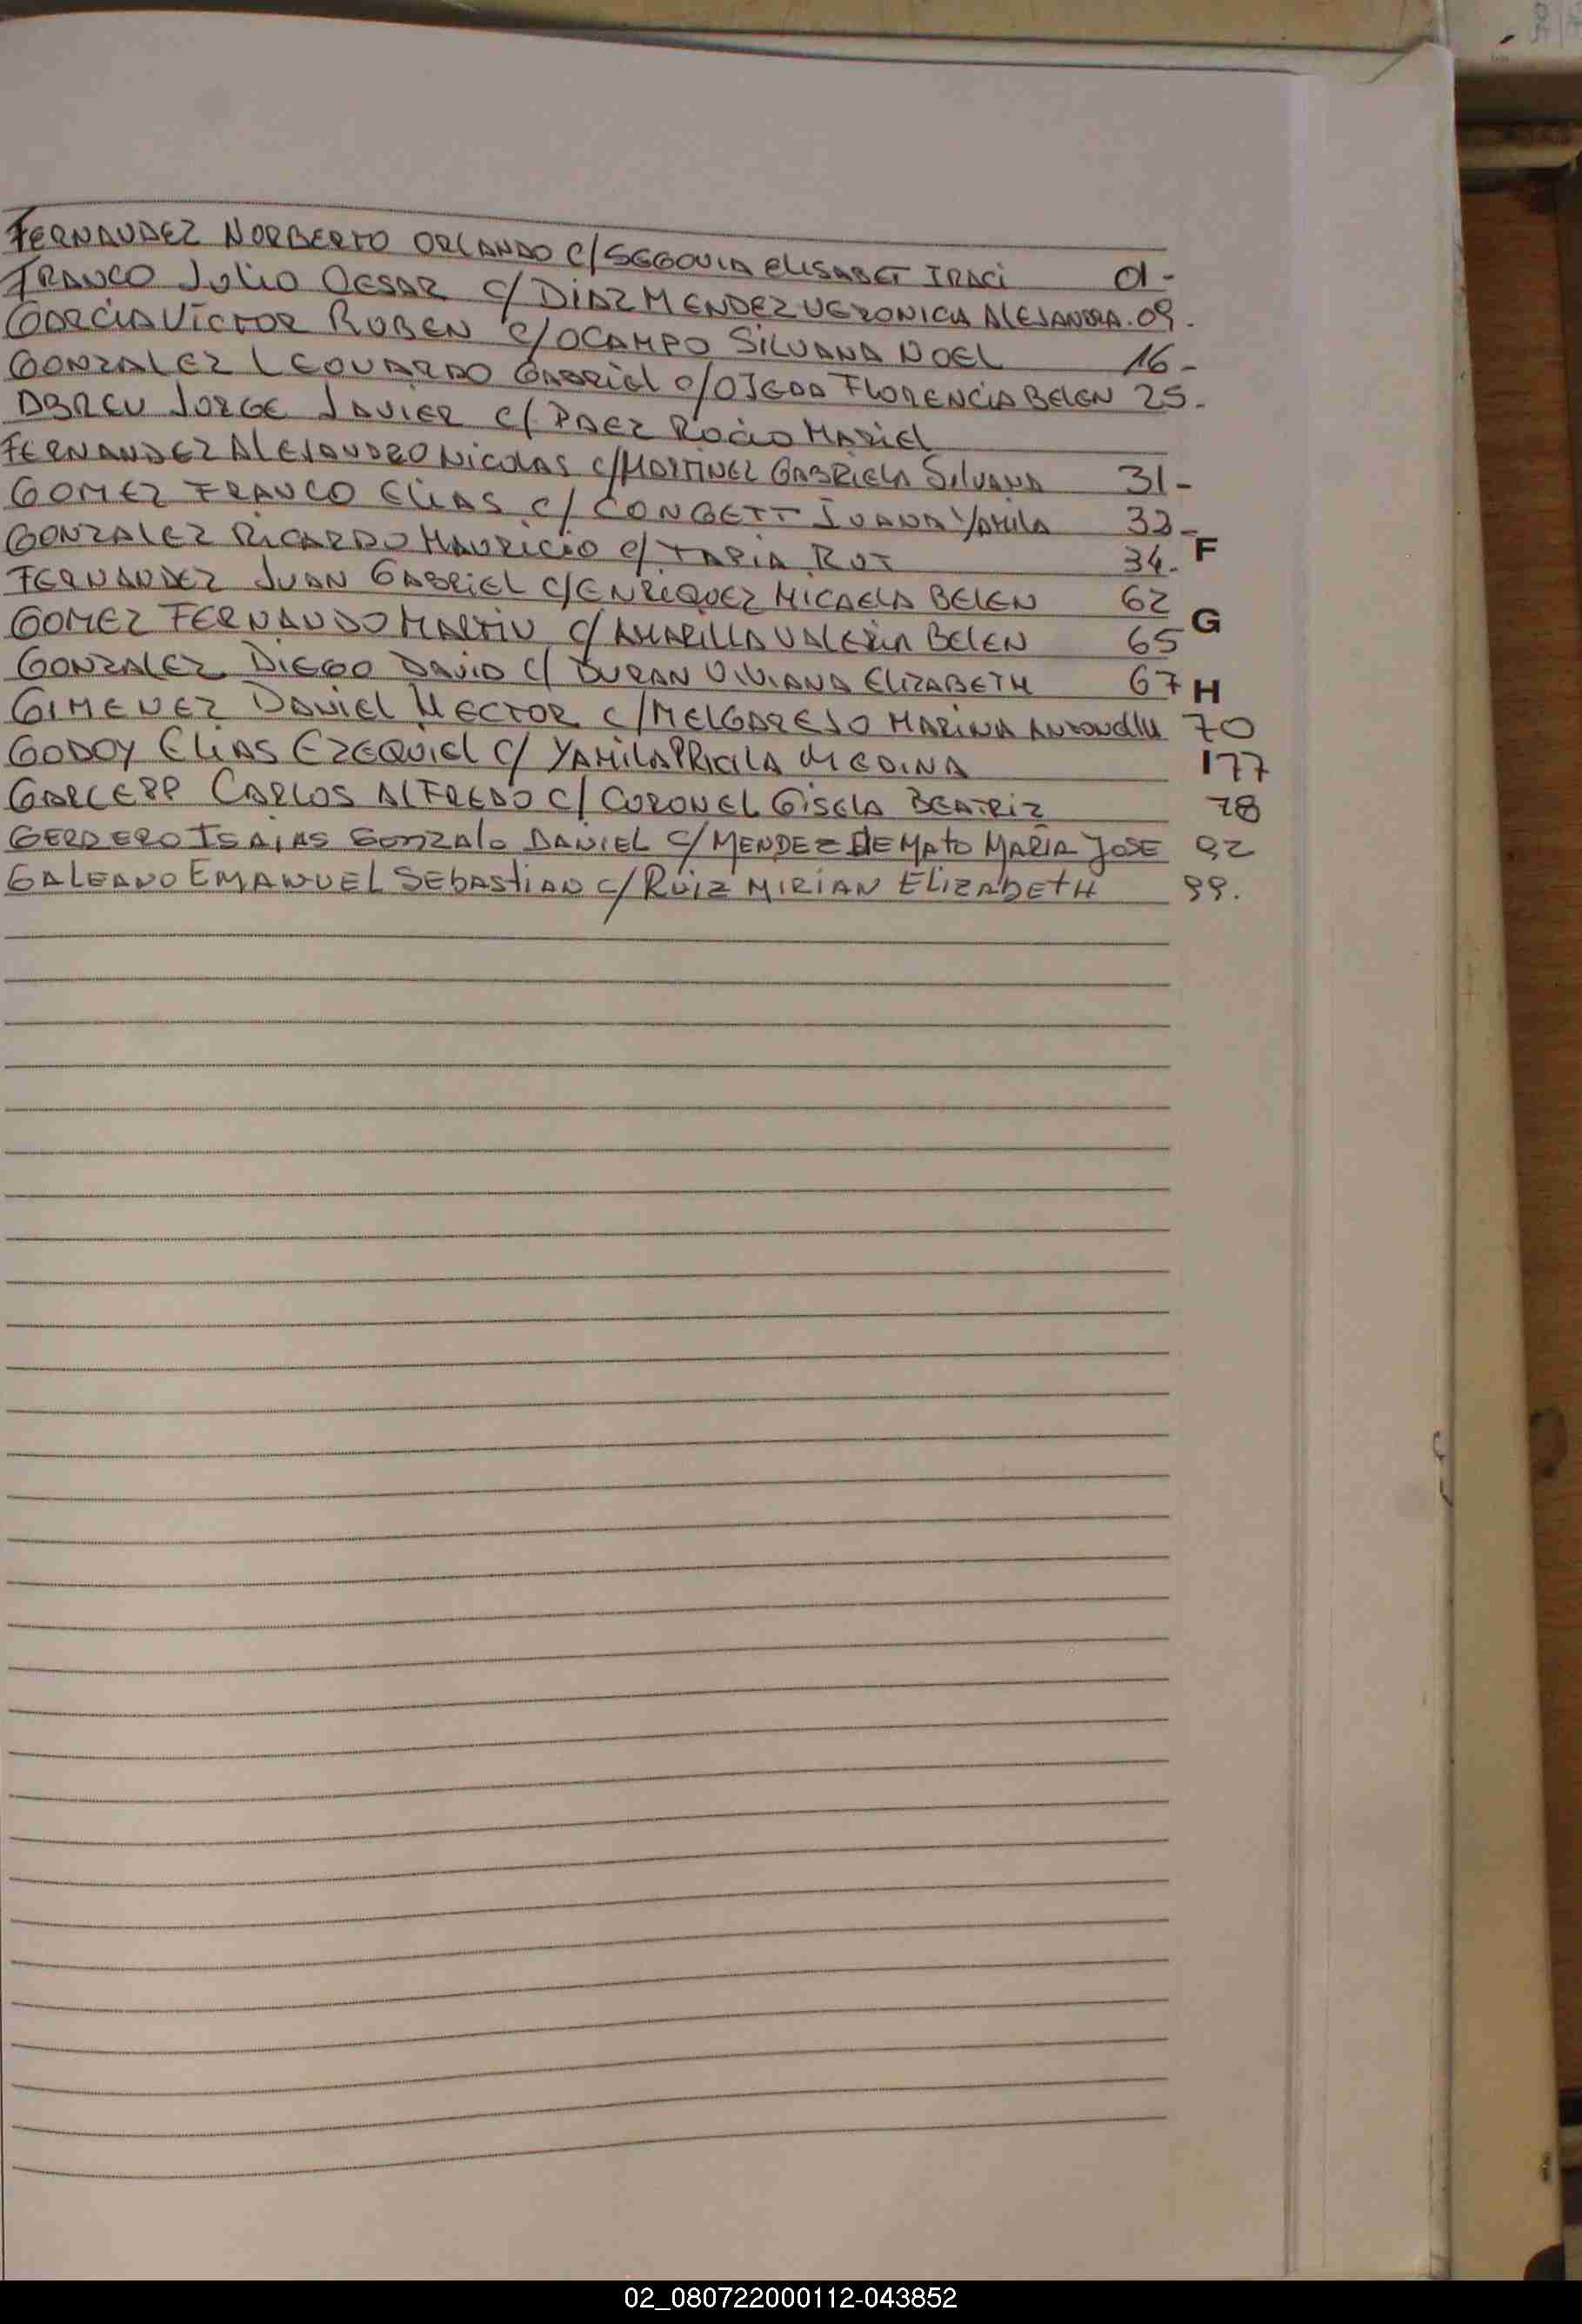 FERNANDEZ NORBERTO ORLANDO C/SEGOVIA ELISABET IRACI 01-
FRANCO JULIO CESAR C/ DIAZ MENDEZ VERONICA ALEJANDRA. 09.
GARCIA VICTOR RUBEN C/OCAMPO SILVANA NOEL 16-
GONZALEZ LEONARDO GABRIEL C/OJEDA FLORENCIA BELEN 25.
ABREU JORGE JAVIER C/ PAEZ ROCIO MARIEL
FERNANDEZ ALEJANDRO NICOLAS C/MARTINEZ GABRIELA SILVANA 31-
GOMEZ FRANCO ELIAS C/ CONGETT IVANA YAMILA 33-
GONZALEZ RICARDO MAURICIO C/ TAPIA RUT 34. F
FERNANDEZ JUAN GABRIEL C/ENRIQUEZ MICAELA BELEN 62
GOMEZ FERNANDO MARTIN C/ AMARILLA VALERIA BELEN 65 G
GONZALEZ DIEGO DAVID C/ DURAN VIVIANA ELIZABETH 67 H
GIMENEZ DANIEL HECTOR C/MELGAREJO MARINA ANTONELLA 70
GODOY ELIAS EZEQUIEL C/ YAMILA PRICILA MEDINA 177
CARLOS ALFREDO C/ CORONEL GISELA BEATRIZ 78
ISAIAS GONZALO DANIEL C/ MENDEZ DE MATO MARIA JOSE 92
GALEANO EMANUEL SEBASTIAN C/ RUIZ MIRIAN ELIZABETH 99.
02_080722000112-043852